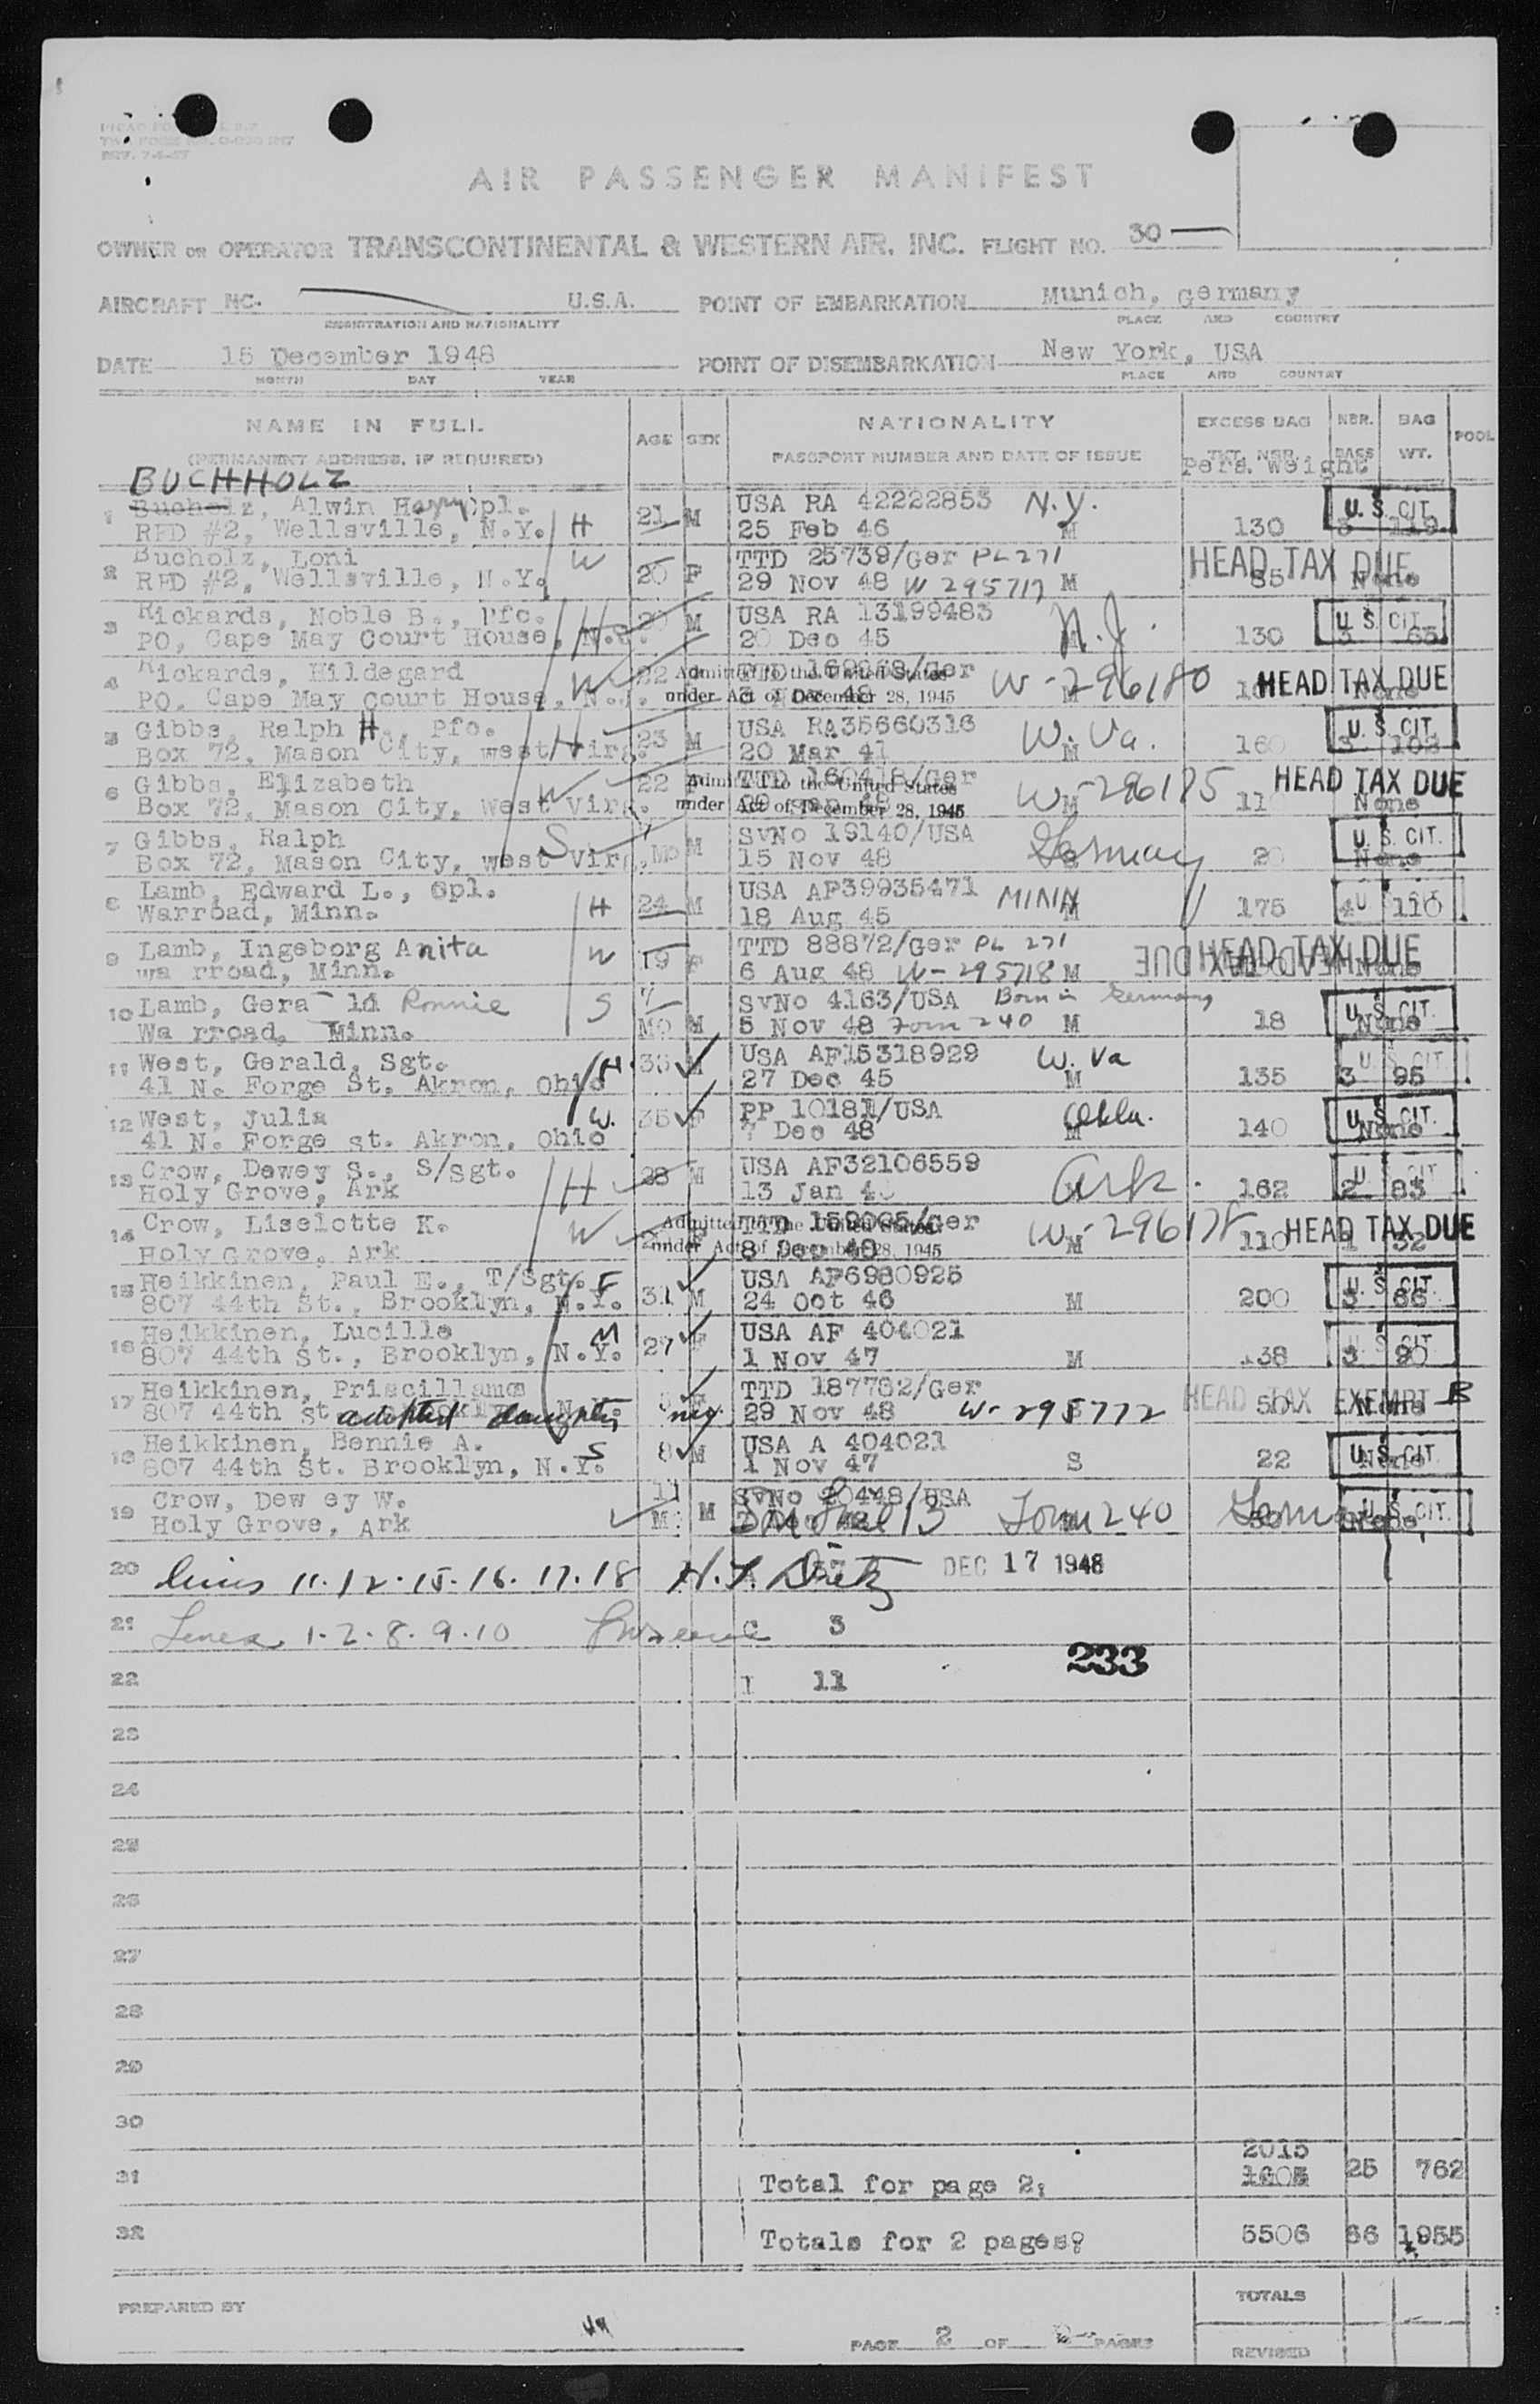 AIR PASSENGER MANIFEST
OWNER OR OPERATOR TRANSCONTINENTAL & WESTERN AIR, INC. FLIGHT NO. 30
AIRCRAFT NC. U.S.A. POINT OF EMBARKATION Munich, Germany
REGISTRATION AND NATIONALITY PLACE AND COUNTRY
DATE 15 December 1948 POINT OF DISEMBARKATION New York, USA
MONTH DAY YEAR PLACE AND COUNTRY
NAME IN FULL AGE SEX NATIONALITY EXCESS BAG NBR. BAG POOL
(PERMANENT ADDRESS, IF REQUIRED) PASSPORT NUMBER AND DATE OF ISSUE TKT. NBR. BAGS WT.
Pers. Weight
BUCHHOLZ
1 Bucholz, Alwin Harry Cpl. H 21 M USA RA 42222853 N.Y. U.S. CIT.
RFD #2, Wellsville, N.Y. 25 Feb 46 M 130 3 119
2 Bucholz, Loni W 20 F TTD 25739/Ger PL 271 HEAD TAX DUE
RFD #2, Wellsville, N.Y. 29 Nov 48 W 295717 M 85 None
3 Rickards, Noble B., Pfc. H M USA RA 13199483 N.J. U.S. CIT.
PO, Cape May Court House, N.J. 20 Dec 45 130 3 65
4 Rickards, Hildegard W 22 Admitted to the United States W-296180 HEAD TAX DUE
PO, Cape May Court House, N.J. under Act of December 28, 1945 None
5 Gibbs, Ralph H., Pfc. H 23 M USA RA35660316 W. Va. U.S. CIT.
Box 72, Mason City, West Virg. 20 Mar 41 M 160 3 102
6 Gibbs, Elizabeth W 22 Admitted to the United States HEAD TAX DUE
Box 72, Mason City, West Virg. under Act of December 28, 1945 None
7 Gibbs, Ralph S M SvNo 19140/USA Germany U.S. CIT.
Box 72, Mason City, West Virg. Mo 15 Nov 48 20 None
8 Lamb, Edward L., Cpl. H 24 M USA AF39935471 MINN U.S. CIT.
Warroad, Minn. 18 Aug 45 M 175 4 110
9 Lamb, Ingeborg Anita W 19 F TTD 88872/Ger PL 271 HEAD TAX DUE
Wa rroad, Minn. 6 Aug 48 W-295718 M None
10 Lamb, Gera ld Ronnie S 7 SvNo 4163/USA Born in Germany U.S. CIT.
Wa rroad, Minn. Mo M 5 Nov 48 Form 240 M 18 None
11 West, Gerald, Sgt. H 35 M USA AF15318929 W. Va U.S. CIT.
41 N. Forge St, Akron, Ohio 27 Dec 45 M 135 3 95
12 West, Julia W. 35 F PP 10181/USA Okla. U.S. CIT.
41 N. Forge st. Akron, Ohio 7 Dec 48 M 140 None
13 Crow, Dewey S., S/Sgt. H 28 M USA AF32106559 Ark. U.S. CIT.
Holy Grove, Ark 13 Jan 162 2 83
14 Crow, Liselotte K. W Admitted to the United States W-296178 HEAD TAX DUE
Holy Grove, Ark under Act of December 28, 1945 110 1 32
15 Heikkinen, Paul E., T/Sgt. F 31 M USA AF6980925 U.S. CIT.
807 44th St., Brooklyn, N.Y. 24 Oct 46 M 200 3 66
16 Heikkinen, Lucille M 27 F USA AF 404021 U.S. CIT.
807 44th St., Brooklyn, N.Y. 1 Nov 47 M 138 3 90
17 Heikkinen, Priscilla TTD 187782/Ger HEAD TAX EXEMPT B
807 44th St. adopted daughter 29 Nov 48 W-295772 None
18 Heikkinen, Bennie A. S 8 M USA A 404021 U.S. CIT.
807 44th St. Brooklyn, N.Y. 1 Nov 47 S 22 None
19 Crow, Dew ey W. M SvNo 20448/USA U.S. CIT.
Holy Grove, Ark Form 240
20 Lines 11.12.15.16.17.18 DEC 17 1948
21 Lines 1.2.8.9.10 C 3
22 I 11 233
23
24
25
26
27
28
29
30
2015
31 Total for page 2: 25 762
32 Totals for 2 pages: 5506 66 1955
TOTALS
PREPARED BY
PAGE 2 OF 2 PAGES
REVISED